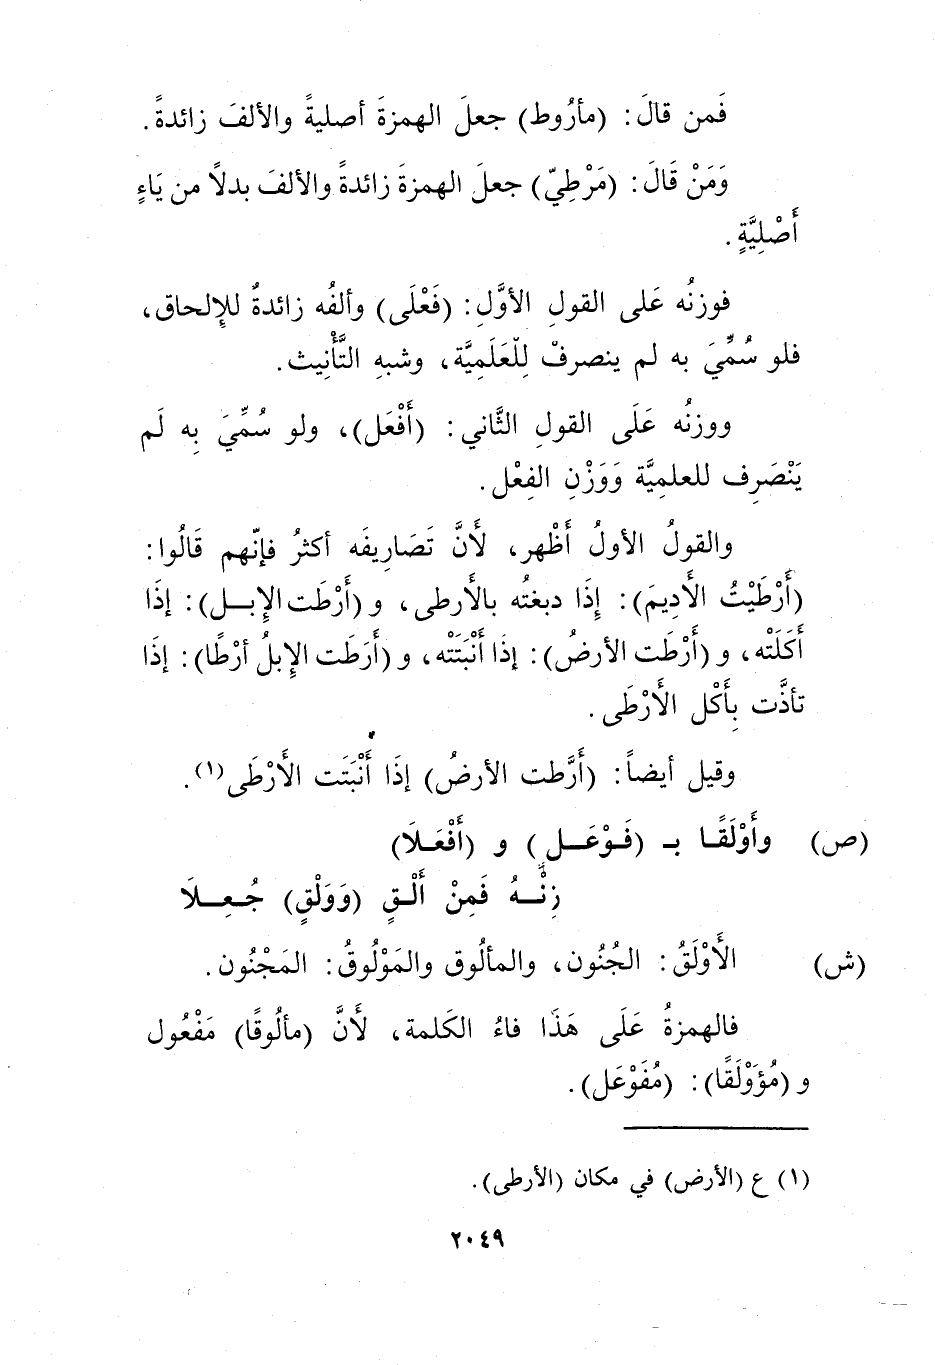 فَمن قالَ: (مأرُوط) جعلَ الهمزةَ أصليةً والألفَ زائدةً.
وَمَنْ قَالَ: (مَرْطِيّ) جعلَ الهمزةَ زائدةً والألفَ بدلاً من يَاءٍ
أَصْلِيَّةٍ.
فوزنُه عَلى القولِ الأوَّلِ: (فَعْلَى) وألفُه زائدةٌ للإِلحاق،
فلو سُمِّيَ به لم ينصرفْ لِلْعَلَمِيَّة، وشبهِ التَّأْنِيث.
ووزنُه عَلَى القولِ الثَّاني: (أَفْعَل)، ولو سُمِّيَ بِه لَم
يَنْصَرِف للعلمِيَّة وَوَزْنِ الفِعْل.
والقولُ الأولُ أَظْهر، لأَنَّ تَصَارِيفَه أكثرُ فإنّهم قَالُوا:
(أَرْطَيْتُ الأَدِيمَ): إِذَا دبغتُه بالأَرطى، و(أَرْطَت الإِبـل): إذَا
أَكَلَتْه، و(أَرْطَت الأرضُ): إذَا أَنْبَتَتْه، و(أَرَطَت الإِبلُ أرْطًا): إذَا
تأذَّت بِأَكْل الأَرْطَى.
وقيل أيضاً: (أَرَّطت الأرضُ) إذَا أَنْبَتَت الأَرْطَى(١).
(ص) وأَوْلَقًـا بـ (فَـوْعَـل) و (أَفْعَـلَا)
زِنْـهُ فَمِنْ أَلْـقٍ (وَوَلْقٍ) جُـعِـلَا
(ش) الأَوْلَقُ: الجُنُون، والمألُوق والمَوْلُوقُ: المَجْنُون.
فالهمزةُ عَلَى هَذَا فاءُ الكَلمة، لأَنَّ (مألُوقًا) مَفْعُول
و(مُؤَوْلَقًا): (مُفَوْعَل).
(١) ع (الأرض) في مكان (الأرطى).
٢٠٤٩